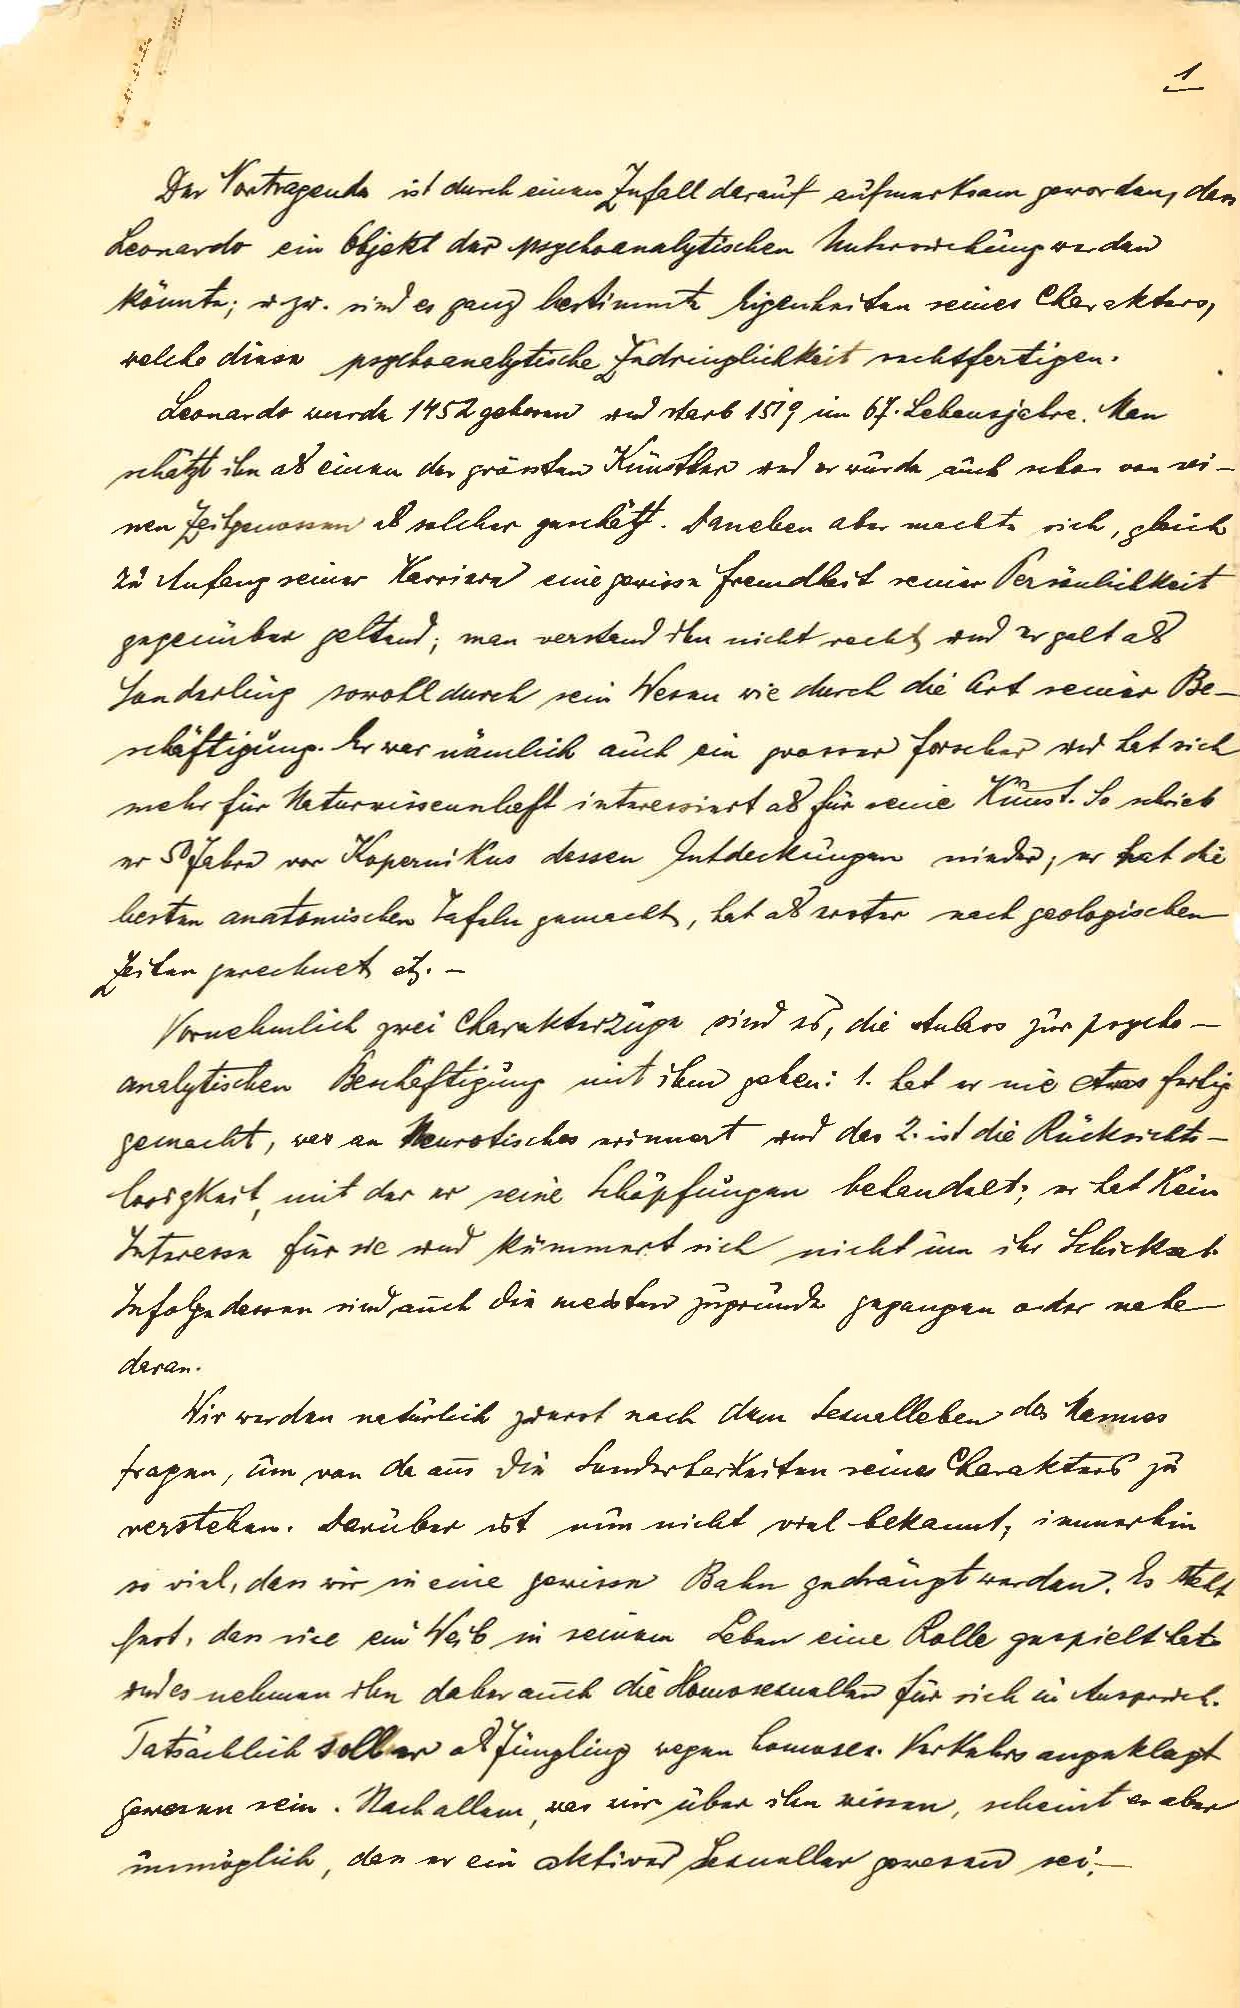 1
Der Vortragende ist durch einen Zufall darauf aufmerksam geworden, dass
Leonardo ein Objekt der psychoanalytischen Untersuchung werden
könnte; u. zw. sind es ganz bestimmte Eigenheiten seines Charakters,
welche diese psychoanalytische Zudringlichkeit rechtfertigen.
Leonardo wurde 1452 geboren und starb 1519 im 67. Lebensjahre. Man
schätzt ihn als einen der grössten Künstler und er wurde auch schon von sei-
nen Zeitgenossen als solcher geschätzt. Daneben aber machte sich, gleich
zu Anfang seiner Karriere eine gewisse Fremdheit seiner Persönlichkeit
gegenüber geltend; man verstand ihn nicht recht und er galt als
Sonderling sowohl durch sein Wesen wie durch die Art seiner Be-
schäftigung. Er war nämlich auch ein grosser Forscher und hat sich
mehr für Naturwissenschaft interessiert als für seine Kunst. So schrieb
er 50 Jahre vor Kopernikus dessen Entdeckungen nieder; er hat die
besten anatomischen Tafeln gemacht, hat als erster nach geologischen
Zeiten gerechnet etz. -
Vornehmlich zwei Charakterzüge sind es, die Anlass zur psycho-
analytischen Beschäftigung mit ihm geben: 1. hat er nie etwas fertig
gemacht, was an Neurotisches erinnert und das 2. ist die Rücksichts-
losigkeit, mit der er seine Schöpfungen behandelt; er hat kein
Interesse für sie und kümmert sich nicht um ihr Schicksal.
Infolgedessen sind auch die meisten zugrunde gegangen oder nahe
daran.
Wir werden natürlich zuerst nach dem Sexualleben des Mannes
fragen, um von da aus die Sonderbarkeiten seines Charakters zu
verstehen. Darüber ist nun nicht viel bekannt; immerhin
so viel, dass wir in eine gewisse Bahn gedrängt werden. Es steht
fest, dass nie ein Weib in seinem Leben eine Rolle gespielt hat
und es nehmen ihn daher auch die Homosexuellen für sich in Anspruch.
Tatsächlich soll er als Jüngling wegen homosex. Verkehrs angeklagt
gewesen sein. Nach allem, was wir über ihn wissen, scheint es aber
unmöglich, dass er ein aktiver Sexueller gewesen sei. -